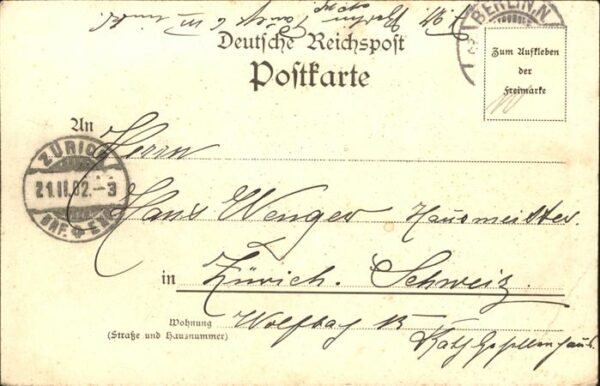 BERLIN, N
Deutsche Reichspost
Postkarte
Zum Aufkleben
der
Freimarke
An
Herrn
ZÜRICH
21.II.02.-3
BRF.
Hans Wenger Hausmeister.
in Zürich. Schweiz.
Wohnung
(Straße und Hausnummer)
Wolfbag 15
Kath Gesellenhaus.